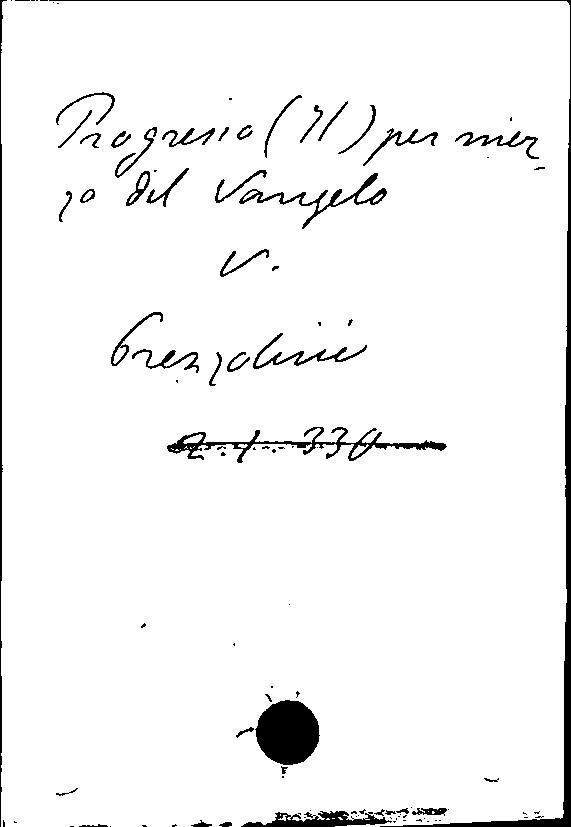 Progresso (Il) per mez-
zo del Vangelo
V.
Grezzolini
2.1.330